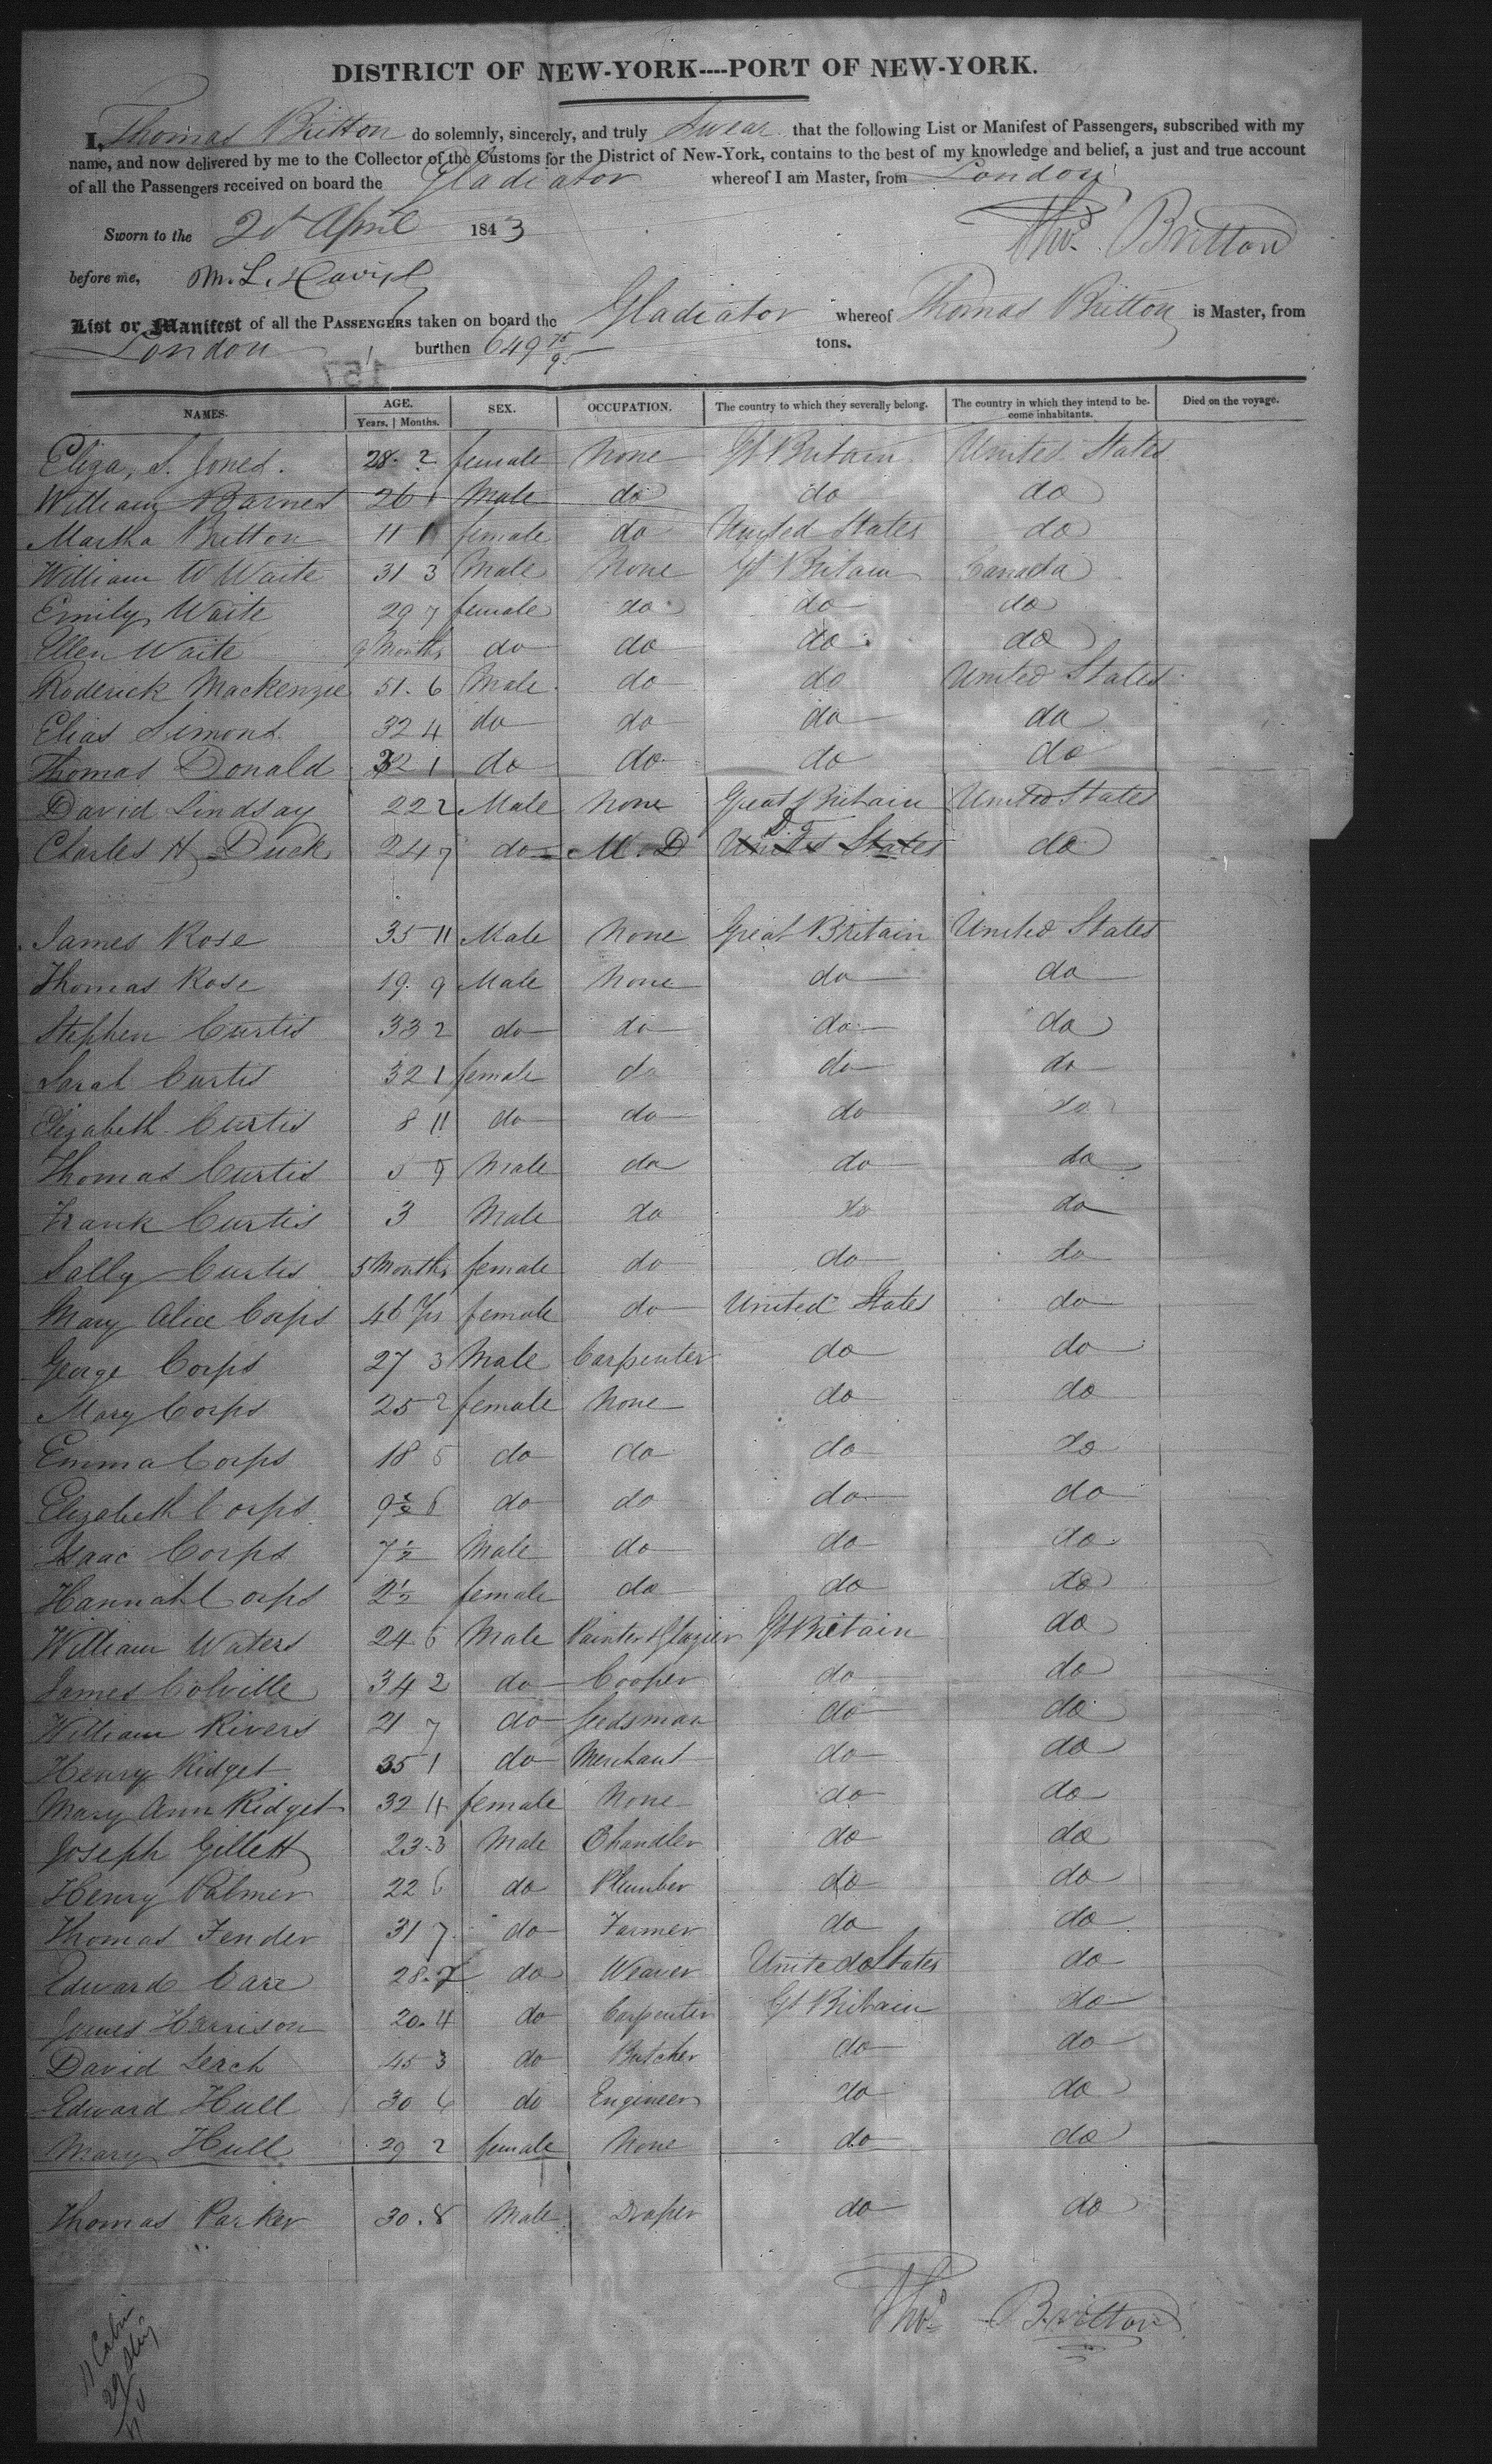 DISTRICT OF NEW-YORK----PORT OF NEW-YORK.
I, Thomas Britton do solemnly, sincerely, and truly Swear that the following List or Manifest of Passengers, subscribed with my
name, and now delivered by me to the Collector of the Customs for the District of New-York, contains to the best of my knowledge and belief, a just and true account
of all the Passengers received on board the Gladiator whereof I am Master, from London
Sworn to the April 1843 Thos. Britton
before me, M. L.
List or Manifest of all the PASSENGERS taken on board the Gladiator whereof Thomas Britton is Master, from
London burthen 649 75/95 tons.
157
NAMES. AGE. Years. | Months. SEX. OCCUPATION. The country to which they severally belong. The country in which they intend to become inhabitants. Died on the voyage.
Eliza, S. Jones. 28. 2 female None Gt Britain United States
William Barnes 26 1 Male do do do
Martha Britton 11 female do United States do
William W Waite 31 3 Male None Gt Britain Canada
Emily Waite 29 7 female do do do
Ellen Waite 9 Months do do do do
Roderick Mackenzie 51. 6 Male do do United States
Elias Simons 32 4 do do do do
Thomas Donald 32 1 do do do do
David Lindsay 22 2 Male None Great Britain United States
Charles H Duck 24 7 do M. D United States do
James Rose 35 11 Male None Great Britain United States
Thomas Rose 19. 9 Male None do do
Stephen Curtis 33 2 do do do do
Sarah Curtis 32 1 female do do do
Elizabeth Curtis 8 11 do do do do
Thomas Curtis 5 9 Male do do do
Frank Curtis 3 Male do do do
Sally Curtis 5 Months female do do do
Mary Alice Corps 46 Yrs female do United States do
George Corps 27 3 Male Carpenter do do
Mary Corps 25 2 female None do do
Emma Corps 18 6 do do do do
Elizabeth Corps 9 6 do do do do
Isaac Corps 7½ Male do do do
Hannah Corps 2½ female do do do
William Waters 24 6 Male Painter & Glazier Gt Britain do
James Colville 34 2 do Cooper do do
William Rivers 21 7 do Seedsman do do
Henry Ridget 35 1 do Merchant do do
Mary Ann Ridget 32 4 female None do do
Joseph Gillett 23. 3 Male Chandler do do
Henry Palmer 22 6 do Plumber do do
Thomas Fender 31 7 do Farmer do do
Edward Care 28. 7 do Weaver United States do
James Harrison 20. 4 do Carpenter Gt Britain do
David Lerch 45 3 do Butcher do do
Edward Hull 30 6 do Engineer do do
Mary Hull 29 2 female None do do
Thomas Parker 30. 8 Male Draper do do
Thos. Britton
11 Cabin
29
40